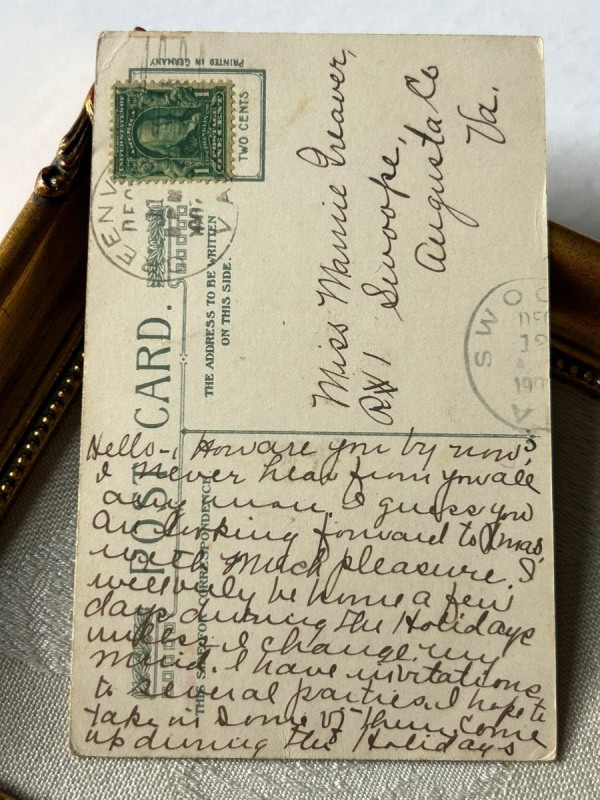 PRINTED IN GERMANY
TWO CENTS
UNITED STATES OF AMERICA
1 1
ONE CENT
DEC
VA
POST CARD.
THE ADDRESS TO BE WRITTEN
ON THIS SIDE.
THIS SPACE FOR CORRESPONDENCE
Miss Mamie Greaver,
Swoope,
Augusta Co
Va.
SWOO
DEC
19
190
VA
Hello-, How are you by now,
I never hear from you all
any more. I guess you
are looking forward to Xmas,
with much pleasure. I
will only be home a few
days during the Holidays
unless I change my
mind. I have invitations
to several parties. I hope to
take in some of them, Come
up during the Holidays